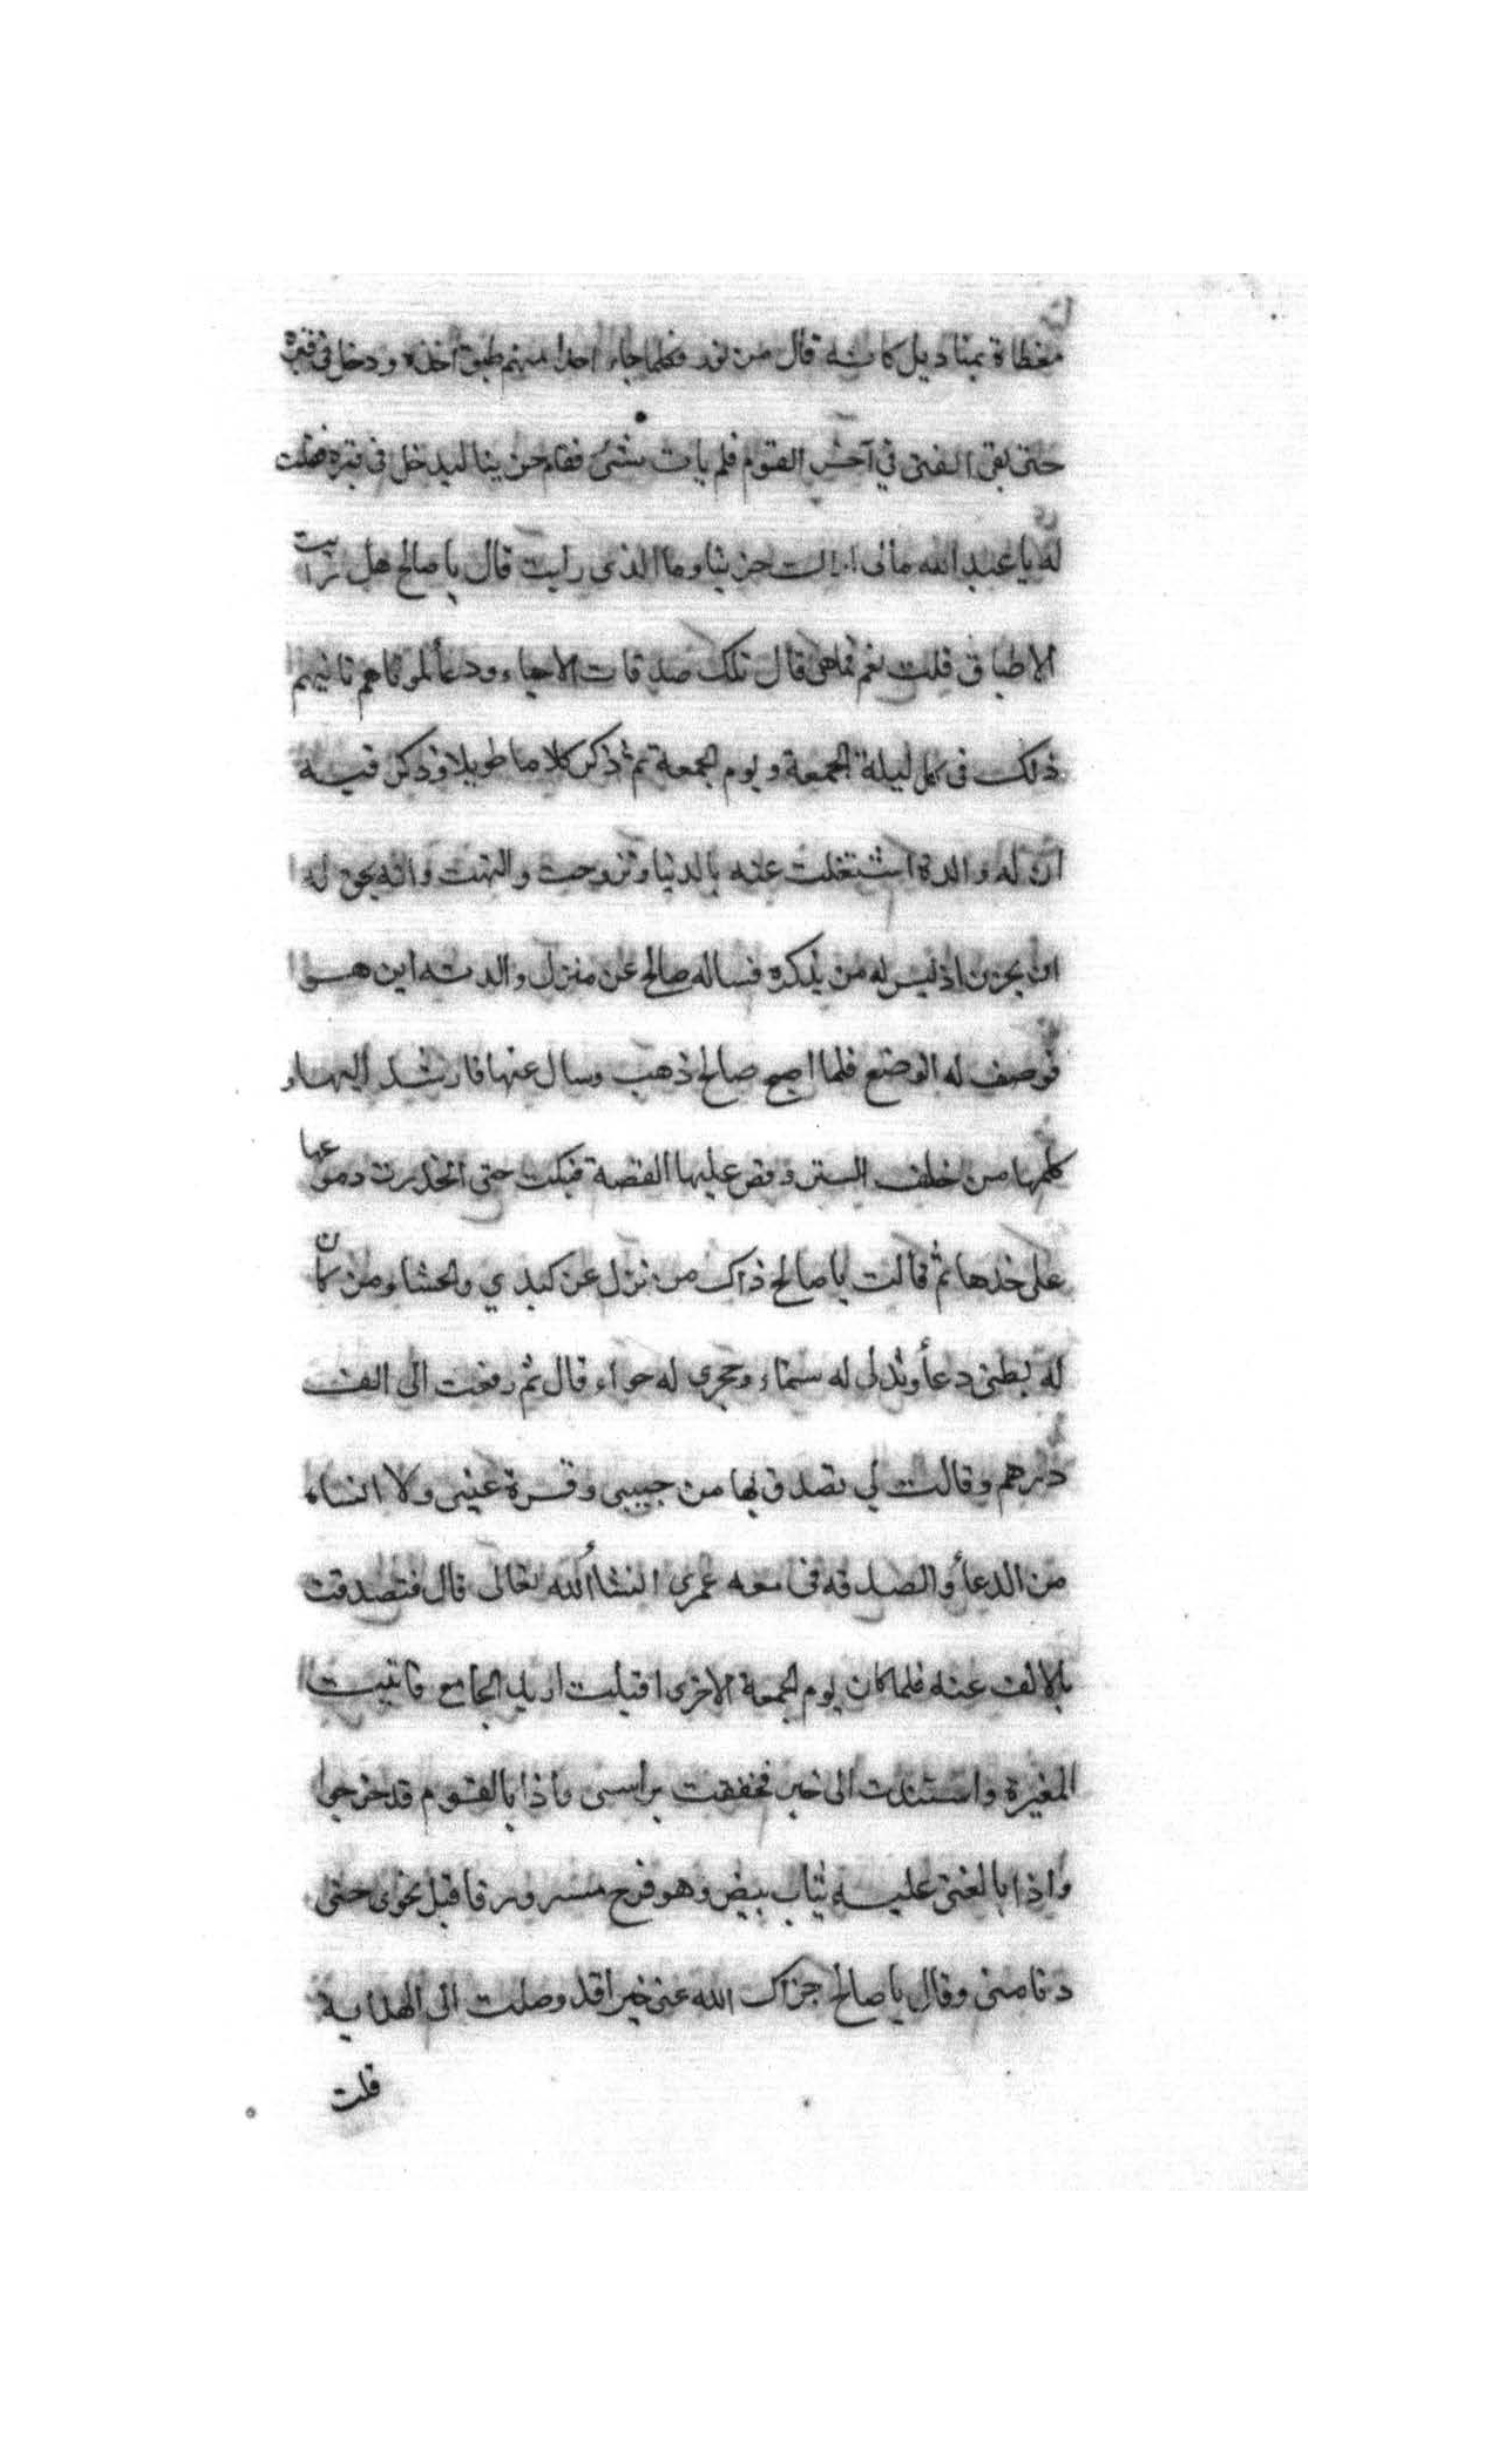 مغطاة بمناديل كانه قال من نور فكلما جاء احدا منهم طبق اخذه ودخل في قبره
حتى بقى الفتى في آخر القوم فلم يات بشئ فقام حزينا ليدخل في قبره فقلت
له يا عبد الله مالى اراك حزينا وما الذى رايت قال يا صالح هل رايت
الاطباق قلت نعم فما هي قال تلك صدقات الاحياء ودعأ لموتاهم تاتيهم
ذلك في كل ليلة الجمعة ويوم الجمعة ثم ذكر كلاما طويلا وذكر فيه
ان له والدة اشتغلت عنه بالدنيا وتزوجت والتهت وانه يحق له
ان يحزن اذ ليس له من يذكره فساله صالح عن منزل والدته اين هو
فوصف له الموضع فلما اصبح صالح ذهب وسال عنها فارشد اليها و
كلمها من خلف الستر وقص عليها القصة فبكت حتى انحدرت دموعها
على خدها ثم قالت يا صالح ذاك من نزل عن كبدي والحشاء ومن كان
له بطنى دعأ وثدلى له سقاء وحجرى له حواء قال ثم دفعت الى الف
درهم وقالت لي تصدق بها من حبيبى وقرة عينى ولا انساه
من الدعأ والصدقه في عمرى انشاالله تعالى قال فتصدقت
بالالف عنه فلما كان يوم الجمعة الاخرى اقبلت اريد الجامع فاتيت
المغيرة واستندت الى خبر فخفقت براسى واذا بالقوم قد خرجوا
واذا بالفتى عليه ثياب بيض وهو فرح مسرور فاقبل نحوى حتى
دنا منى وقال يا صالح جزاك الله عنى خيرا قد وصلت الى الهداية
قلت